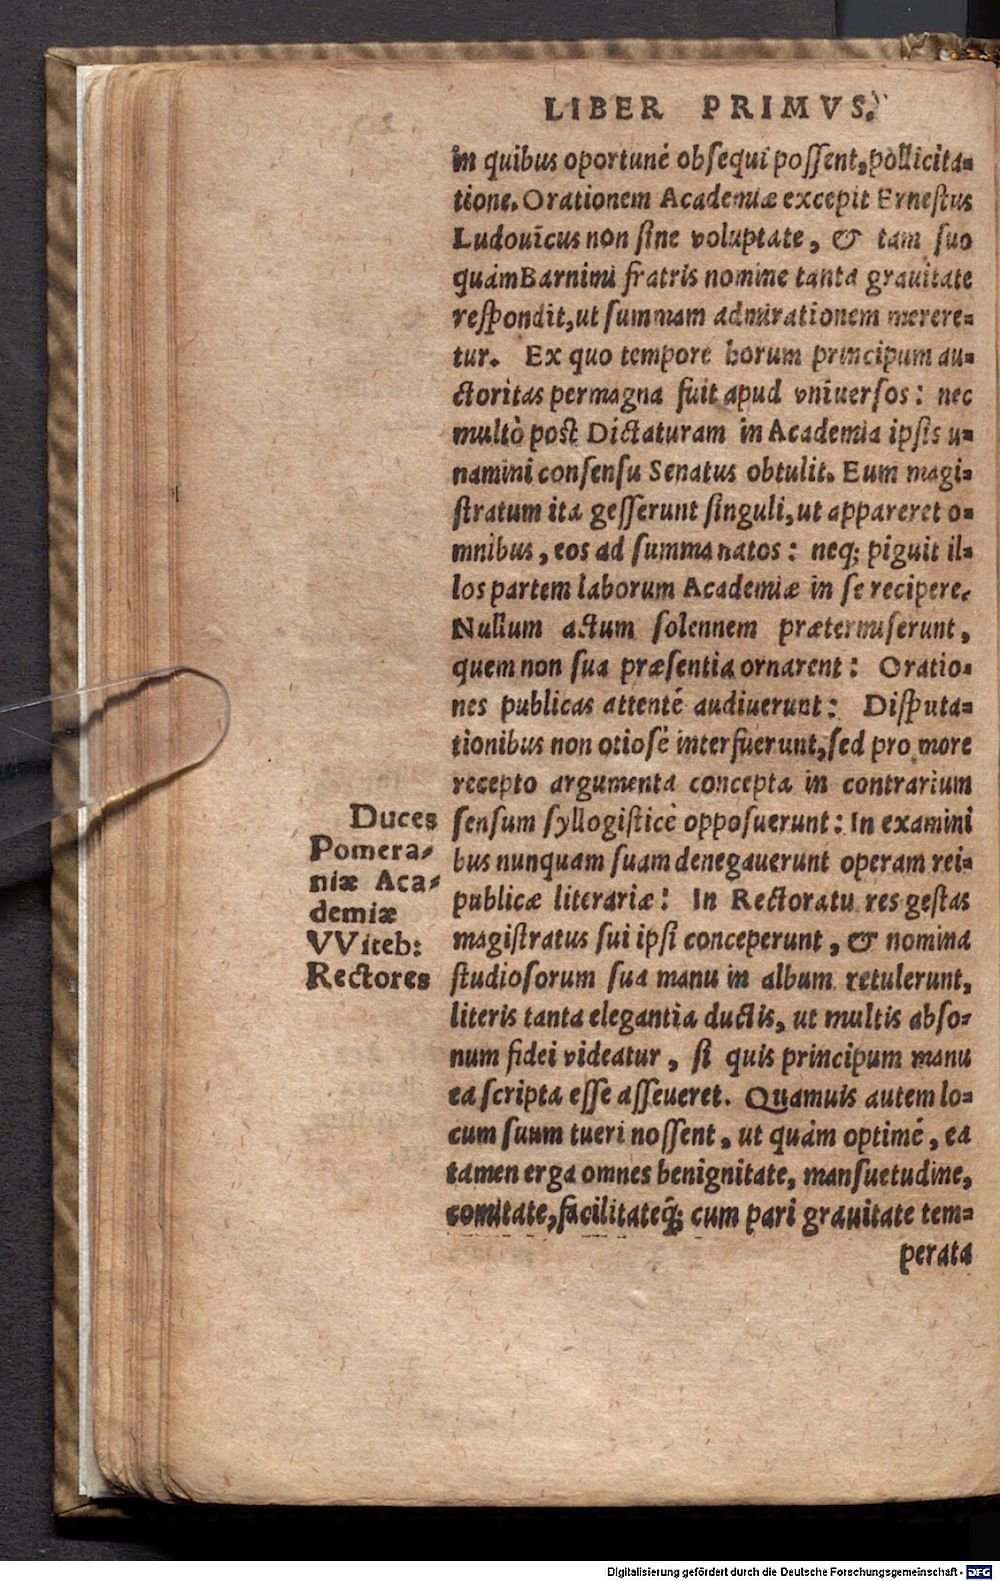 LIBER PRIMVS.
in quibus oportunè obsequi possent, pollicita=
tione. Orationem Academiæ excepit Ernestus
Ludouicus non sine voluptate, & tam suo
quàm Barnimi fratris nomine tanta grauitate
respondit, ut summam admirationem merere=
tur. Ex quo tempore horum principum au=
ctoritas permagna fuit apud vniuersos: nec
multò post Dictaturam in Academia ipsis u=
namini consensu Senatus obtulit. Eum magi=
stratum ita gesserunt singuli, ut appareret o=
mnibus, eos ad summa natos: neq; piguit il=
los partem laborum Academiæ in se recipere.
Nullum actum solennem prætermiserunt,
quem non sua præsentia ornarent: Oratio=
nes publicas attentè audiuerunt: Disputa=
tionibus non otiosè interfuerunt, sed pro more
recepto argumenta concepta in contrarium
sensum syllogisticè opposuerunt: In examini
bus nunquam suam denegauerunt operam rei=
publicæ literariæ: In Rectoratu res gestas
magistratus sui ipsi conceperunt, & nomina
studiosorum sua manu in album retulerunt,
literis tanta elegantia ductis, ut multis abso=
num fidei videatur, si quis principum manu
ea scripta esse asseueret. Quamuis autem lo=
cum suum tueri nossent, ut quàm optimè, ea
tamen erga omnes benignitate, mansuetudine,
comitate, facilitateq́; cum pari grauitate tem=
perata
Duces
Pomera=
niæ Aca=
demiæ
VViteb:
Rectores
Digitalisierung gefördert durch die Deutsche Forschungsgemeinschaft - DFG